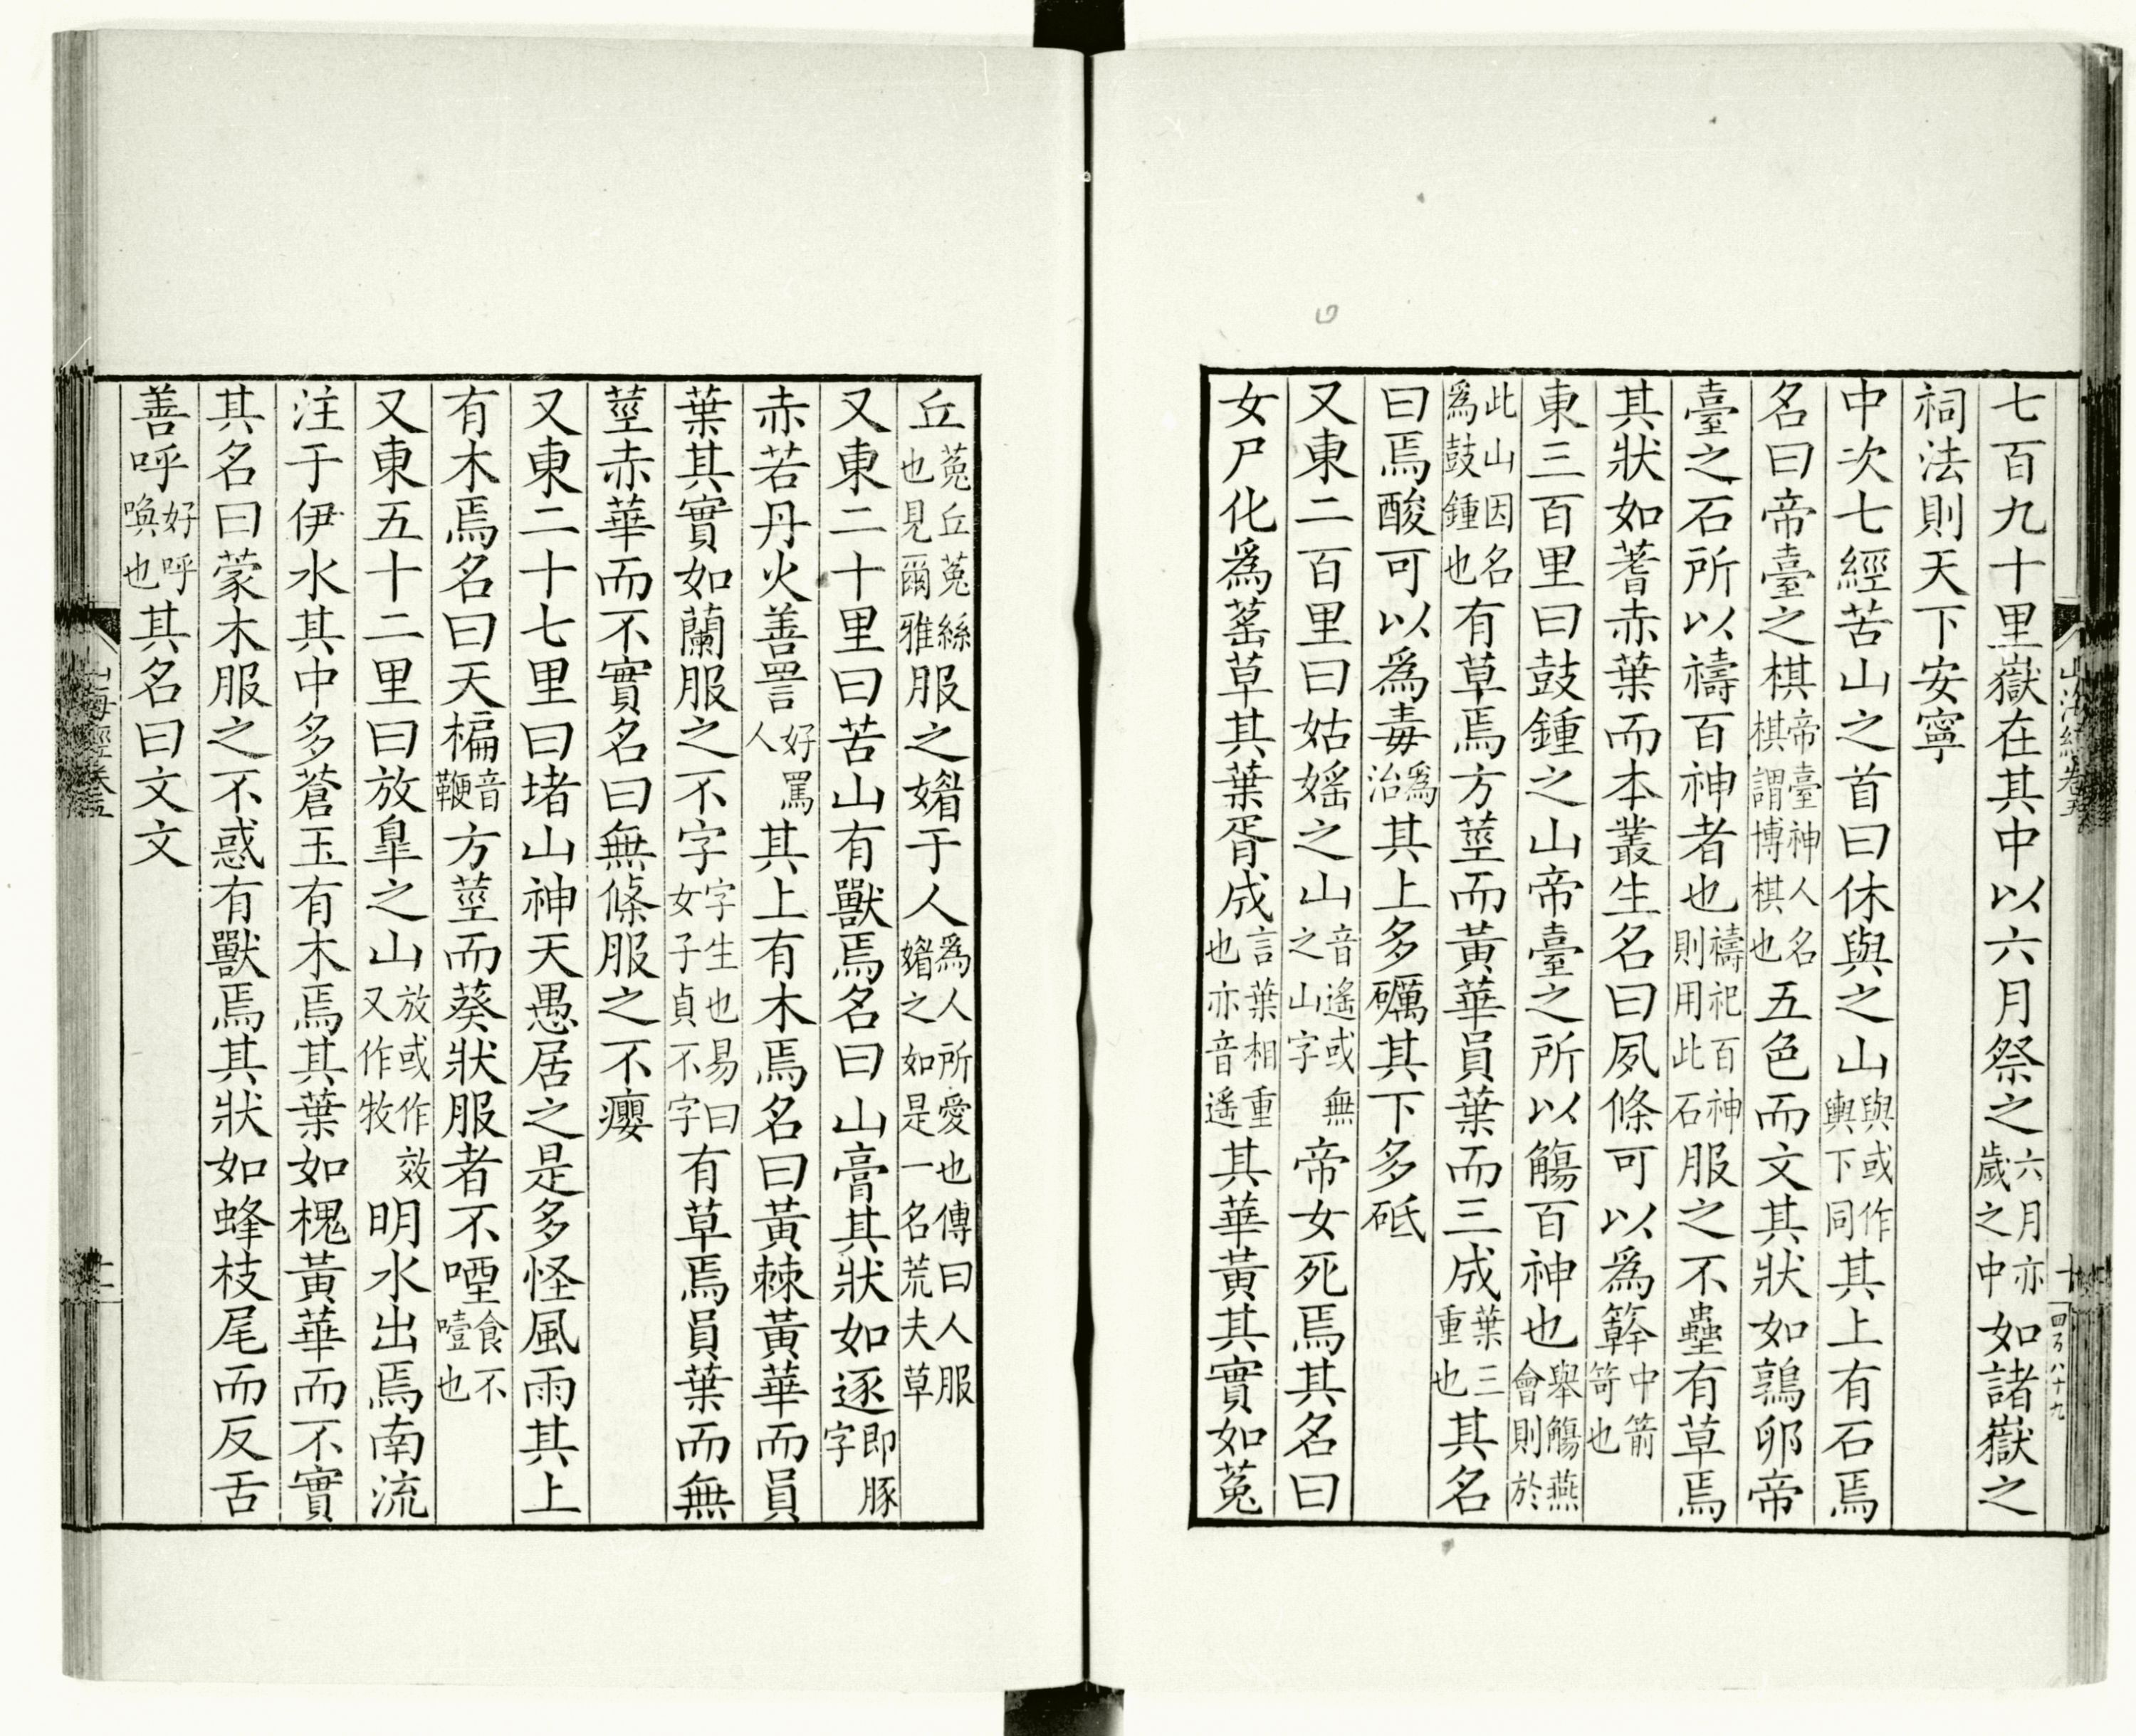 七百九十里嶽在其中以六月祭之六月亦歲之中如諸嶽之
祠法則天下安寧
中次七經苦山之首曰休與之山與或作輿下同其上有石焉
名曰帝臺之棋帝臺神人名棋謂博棋也五色而文其狀如鶉卵帝
臺之石所以禱百神者也禱祀百神則用此石服之不蠱有草焉
其狀如蓍赤葉而本叢生名曰夙條可以爲簳中箭笴也
東三百里曰鼓鍾之山帝臺之所以觴百神也舉觴燕會則於
此山因名爲鼓鍾也有草焉方莖而黃華員葉而三成葉三重也其名
曰焉酸可以爲毒爲治其上多礪其下多砥
又東二百里曰姑媱之山音遙或無之山字帝女死焉其名曰
女尸化爲䔄草其葉胥成言葉相重也亦音遙其華黃其實如菟
丘菟丘菟絲也見爾雅服之媚于人爲人所愛也傳曰人服媚之如是一名荒夫草
又東二十里曰苦山有獸焉名曰山膏其狀如逐即豚字
赤若丹火善詈好罵人其上有木焉名曰黃棘黃華而員
葉其實如蘭服之不字字生也易曰女子貞不字有草焉員葉而無
莖赤華而不實名曰無條服之不癭
又東二十七里曰堵山神天愚居之是多怪風雨其上
有木焉名曰天楄音鞭方莖而葵狀服者不㖶食不噎也
又東五十二里曰放臯之山放或作效又作牧明水出焉南流
注于伊水其中多蒼玉有木焉其葉如槐黃華而不實
其名曰蒙木服之不惑有獸焉其狀如蜂枝尾而反舌
善呼好呼喚也其名曰文文
山海經卷五
十
四百八十九
山海經卷五
十一